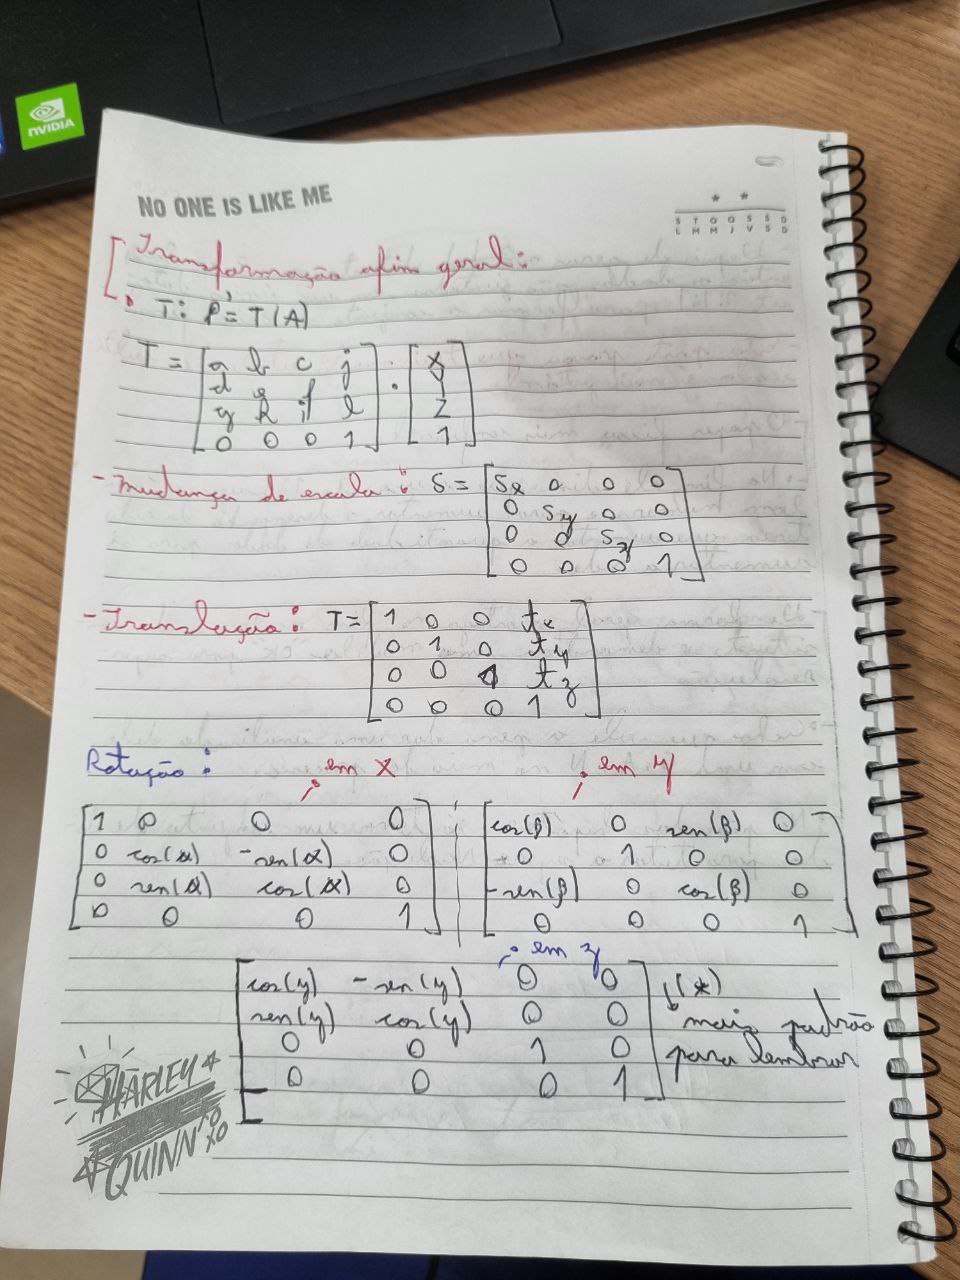 NVIDIA
NO ONE IS LIKE ME
S T Q Q S S D
E M M J V S D
Transformação afim geral:
T: P' = T(A)
T = [a b c j] . [x]
[d e f k] [y]
[g h i l] [z]
[0 0 0 1] [1]
- Mudança de escala: S = [Sx 0 0 0]
[0 Sy 0 0]
[0 0 Sz 0]
[0 0 0 1]
- Translação: T = [1 0 0 tx]
[0 1 0 ty]
[0 0 1 tz]
[0 0 0 1]
Rotação: em x ; em y
[1 0 0 0] [cos(β) 0 sen(β) 0]
[0 cos(α) -sen(α) 0] [0 1 0 0]
[0 sen(α) cos(α) 0] [-sen(β) 0 cos(β) 0]
[0 0 0 1] [0 0 0 1]
em z
[cos(y) -sen(y) 0 0] (*)
[sen(y) cos(y) 0 0] mais padrão
[0 0 1 0] para lembrar
[0 0 0 1]
HARLEY
QUINN
XO
XO